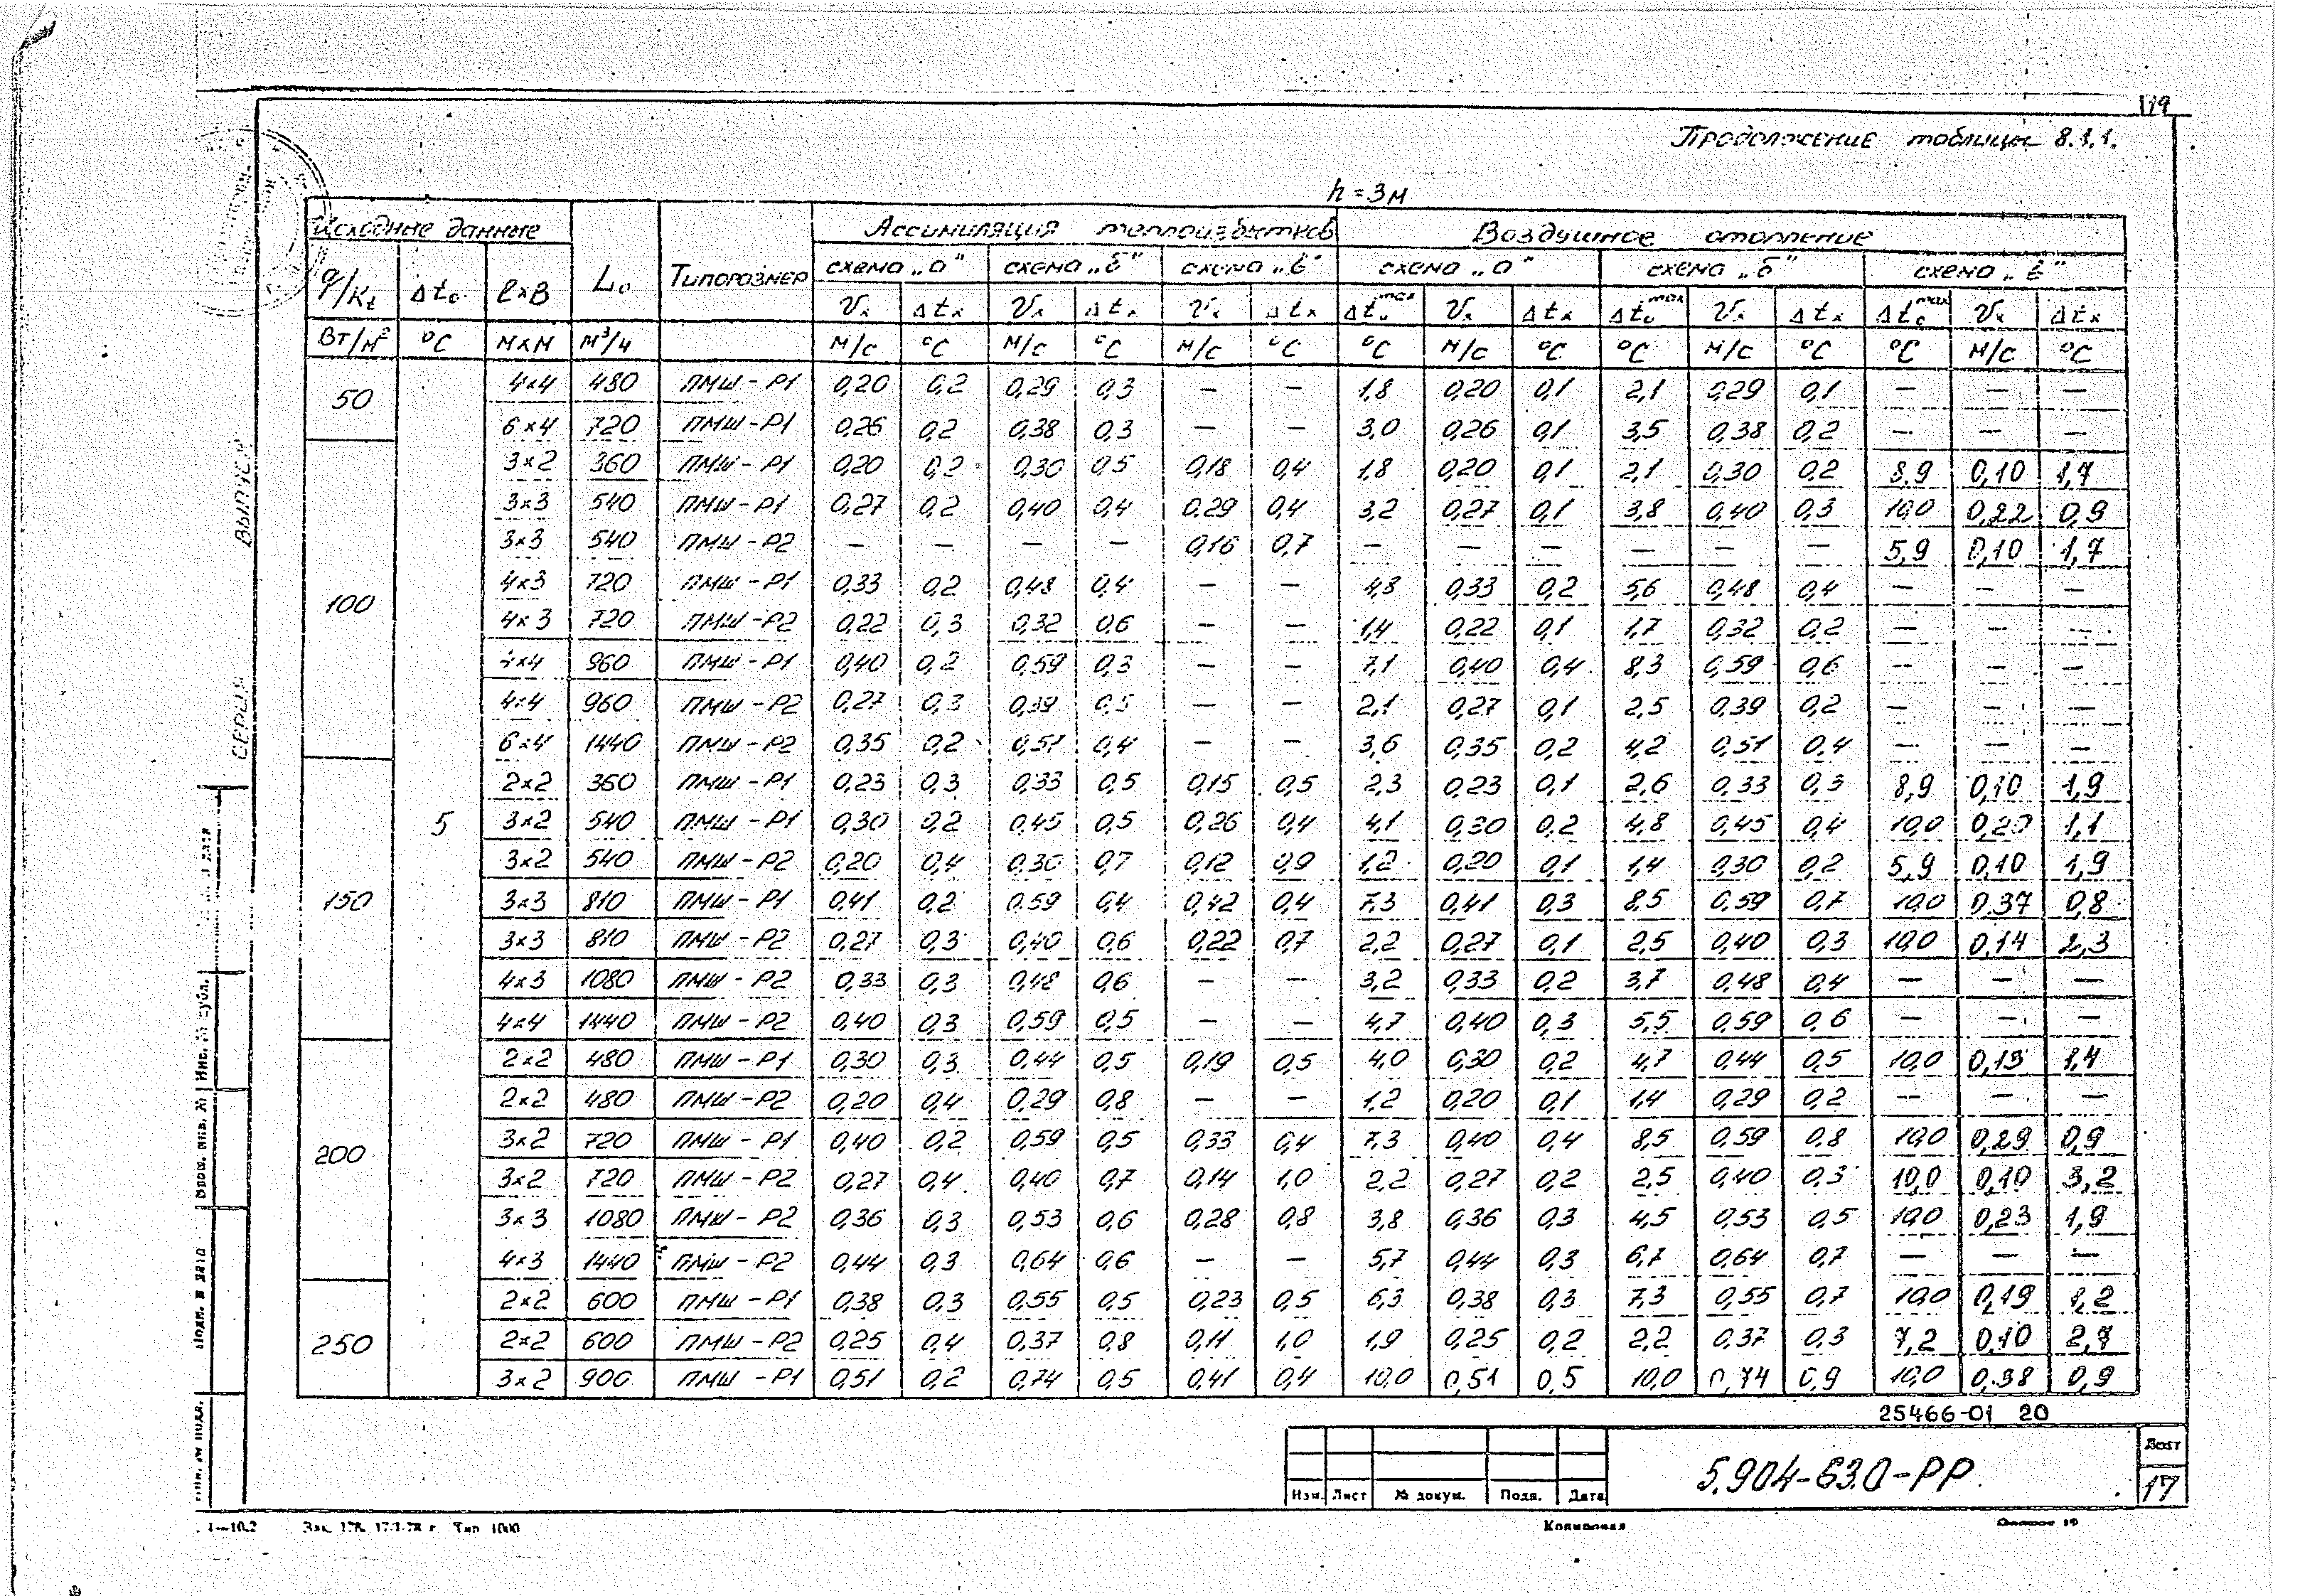 119
Продолжение таблицы 8.1.1.
h = 3м
Исходные данные | L₀ | Типоразмер | Ассимиляция теплоизбытков | Воздушное отопление
q/Kt | Δt₀ | l×B | схема „а" | схема „б" | схема „в" | схема „а" | схема „б" | схема „в"
Vx | Δtx | Vx | Δtx | Vx | Δtx | Δt₀max | Vx | Δtx | Δt₀max | Vx | Δtx | Δt₀max | Vx | Δtx
Вт/м² | °C | м×м | м³/ч | м/с | °C | м/с | °C | м/с | °C | °C | м/с | °C | °C | м/с | °C | °C | м/с | °C
50 | 4×4 | 480 | ПМШ-Р1 | 0,20 | 0,2 | 0,29 | 0,3 | — | — | 1,8 | 0,20 | 0,1 | 2,1 | 0,29 | 0,1 | — | — | —
6×4 | 720 | ПМШ-Р1 | 0,26 | 0,2 | 0,38 | 0,3 | — | — | 3,0 | 0,26 | 0,1 | 3,5 | 0,38 | 0,2 | — | — | —
100 | 3×2 | 360 | ПМШ-Р1 | 0,20 | 0,2 | 0,30 | 0,5 | 0,18 | 0,4 | 1,8 | 0,20 | 0,1 | 2,1 | 0,30 | 0,2 | 8,9 | 0,10 | 1,7
3×3 | 540 | ПМШ-Р1 | 0,27 | 0,2 | 0,40 | 0,4 | 0.29 | 0,4 | 3,2 | 0,27 | 0,1 | 3,8 | 0,40 | 0,3 | 10,0 | 0,22 | 0,9
3×3 | 540 | ПМШ-Р2 | — | — | — | — | 0,16 | 0,7 | — | — | — | — | — | — | 5,9 | 0,10 | 1,7
4×3 | 720 | ПМШ-Р1 | 0,33 | 0,2 | 0,48 | 0,4 | — | — | 4,8 | 0,33 | 0,2 | 5,6 | 0,48 | 0,4 | — | — | —
4×3 | 720 | ПМШ-Р2 | 0,22 | 0,3 | 0,32 | 0,6 | — | — | 1,4 | 0,22 | 0,1 | 1,7 | 0,32 | 0,2 | — | — | —
4×4 | 960 | ПМШ-Р1 | 0,40 | 0,2 | 0,59 | 0,3 | — | — | 7,1 | 0,40 | 0,4 | 8,3 | 0,59 | 0,6 | — | — | —
4×4 | 960 | ПМШ-Р2 | 0,27 | 0,3 | 0,39 | 0,5 | — | — | 2,1 | 0,27 | 0,1 | 2,5 | 0,39 | 0,2 | — | — | —
6×4 | 1440 | ПМШ-Р2 | 0,35 | 0,2 | 0,51 | 0,4 | — | — | 3,6 | 0,35 | 0,2 | 4,2 | 0,51 | 0,4 | — | — | —
5
150 | 2×2 | 360 | ПМШ-Р1 | 0,23 | 0,3 | 0,33 | 0,5 | 0,15 | 0,5 | 2,3 | 0,23 | 0,1 | 2,6 | 0,33 | 0,3 | 8,9 | 0,10 | 1,9
3×2 | 540 | ПМШ-Р1 | 0,30 | 0,2 | 0,45 | 0,5 | 0,26 | 0,4 | 4,1 | 0,30 | 0,2 | 4,8 | 0,45 | 0,4 | 10,0 | 0,20 | 1,1
3×2 | 540 | ПМШ-Р2 | 0,20 | 0,4 | 0,30 | 0,7 | 0,12 | 0,9 | 1,2 | 0,20 | 0,1 | 1,4 | 0,30 | 0,2 | 5,9 | 0,10 | 1,9
3×3 | 810 | ПМШ-Р1 | 0,41 | 0,2 | 0,59 | 0,4 | 0,42 | 0,4 | 7,3 | 0,41 | 0,3 | 8,5 | 0,59 | 0,7 | 10,0 | 0,37 | 0,8
3×3 | 810 | ПМШ-Р2 | 0,27 | 0,3 | 0,40 | 0,6 | 0,22 | 0,7 | 2,2 | 0,27 | 0,1 | 2,5 | 0,40 | 0,3 | 10,0 | 0,14 | 2,3
4×3 | 1080 | ПМШ-Р2 | 0,33 | 0,3 | 0,48 | 0,6 | — | — | 3,2 | 0,33 | 0,2 | 3,7 | 0,48 | 0,4 | — | — | —
4×4 | 1440 | ПМШ-Р2 | 0,40 | 0,3 | 0,59 | 0,5 | — | — | 4,7 | 0,40 | 0,3 | 5,5 | 0,59 | 0,6 | — | — | —
200 | 2×2 | 480 | ПМШ-Р1 | 0,30 | 0,3 | 0,44 | 0,5 | 0,19 | 0,5 | 4,0 | 0,30 | 0,2 | 4,7 | 0,44 | 0,5 | 10,0 | 0,13 | 1,4
2×2 | 480 | ПМШ-Р2 | 0,20 | 0,4 | 0,29 | 0,8 | — | — | 1,2 | 0,20 | 0,1 | 1,4 | 0,29 | 0,2 | — | — | —
3×2 | 720 | ПМШ-Р1 | 0,40 | 0,2 | 0,59 | 0,5 | 0,33 | 0,4 | 7,3 | 0,40 | 0,4 | 8,5 | 0,59 | 0,8 | 10,0 | 0,29 | 0,9
3×2 | 720 | ПМШ-Р2 | 0,27 | 0,4 | 0,40 | 0,7 | 0,14 | 1,0 | 2,2 | 0,27 | 0,2 | 2,5 | 0,40 | 0,3 | 10,0 | 0,10 | 3,2
3×3 | 1080 | ПМШ-Р2 | 0,36 | 0,3 | 0,53 | 0,6 | 0,28 | 0,8 | 3,8 | 0,36 | 0,3 | 4,5 | 0,53 | 0,5 | 10,0 | 0,23 | 1,9
4×3 | 1440 | ПМШ-Р2 | 0,44 | 0,3 | 0,64 | 0,6 | — | — | 5,7 | 0,44 | 0,3 | 6,7 | 0,64 | 0,7 | — | — | —
250 | 2×2 | 600 | ПМШ-Р1 | 0,38 | 0,3 | 0,55 | 0,5 | 0,23 | 0,5 | 6,3 | 0,38 | 0,3 | 7,3 | 0,55 | 0,7 | 10,0 | 0,19 | 1,2
2×2 | 600 | ПМШ-Р2 | 0,25 | 0,4 | 0,37 | 0,8 | 0,11 | 1,0 | 1,9 | 0,25 | 0,2 | 2,2 | 0,37 | 0,3 | 7,2 | 0,10 | 2,7
3×2 | 900 | ПМШ-Р1 | 0,51 | 0,2 | 0,74 | 0,5 | 0,41 | 0,4 | 10,0 | 0,51 | 0,5 | 10,0 | 0,74 | 0,9 | 10,0 | 0,38 | 0,9
25466-01 20
5.904-63.0-РР
Лист
17
Изм. Лист № докум. Подп. Дата
Зак. 178. 17.1-78 г. Тир 1000
Копировал
Серия Выпуск
Взам. инв. №
Подп. и дата